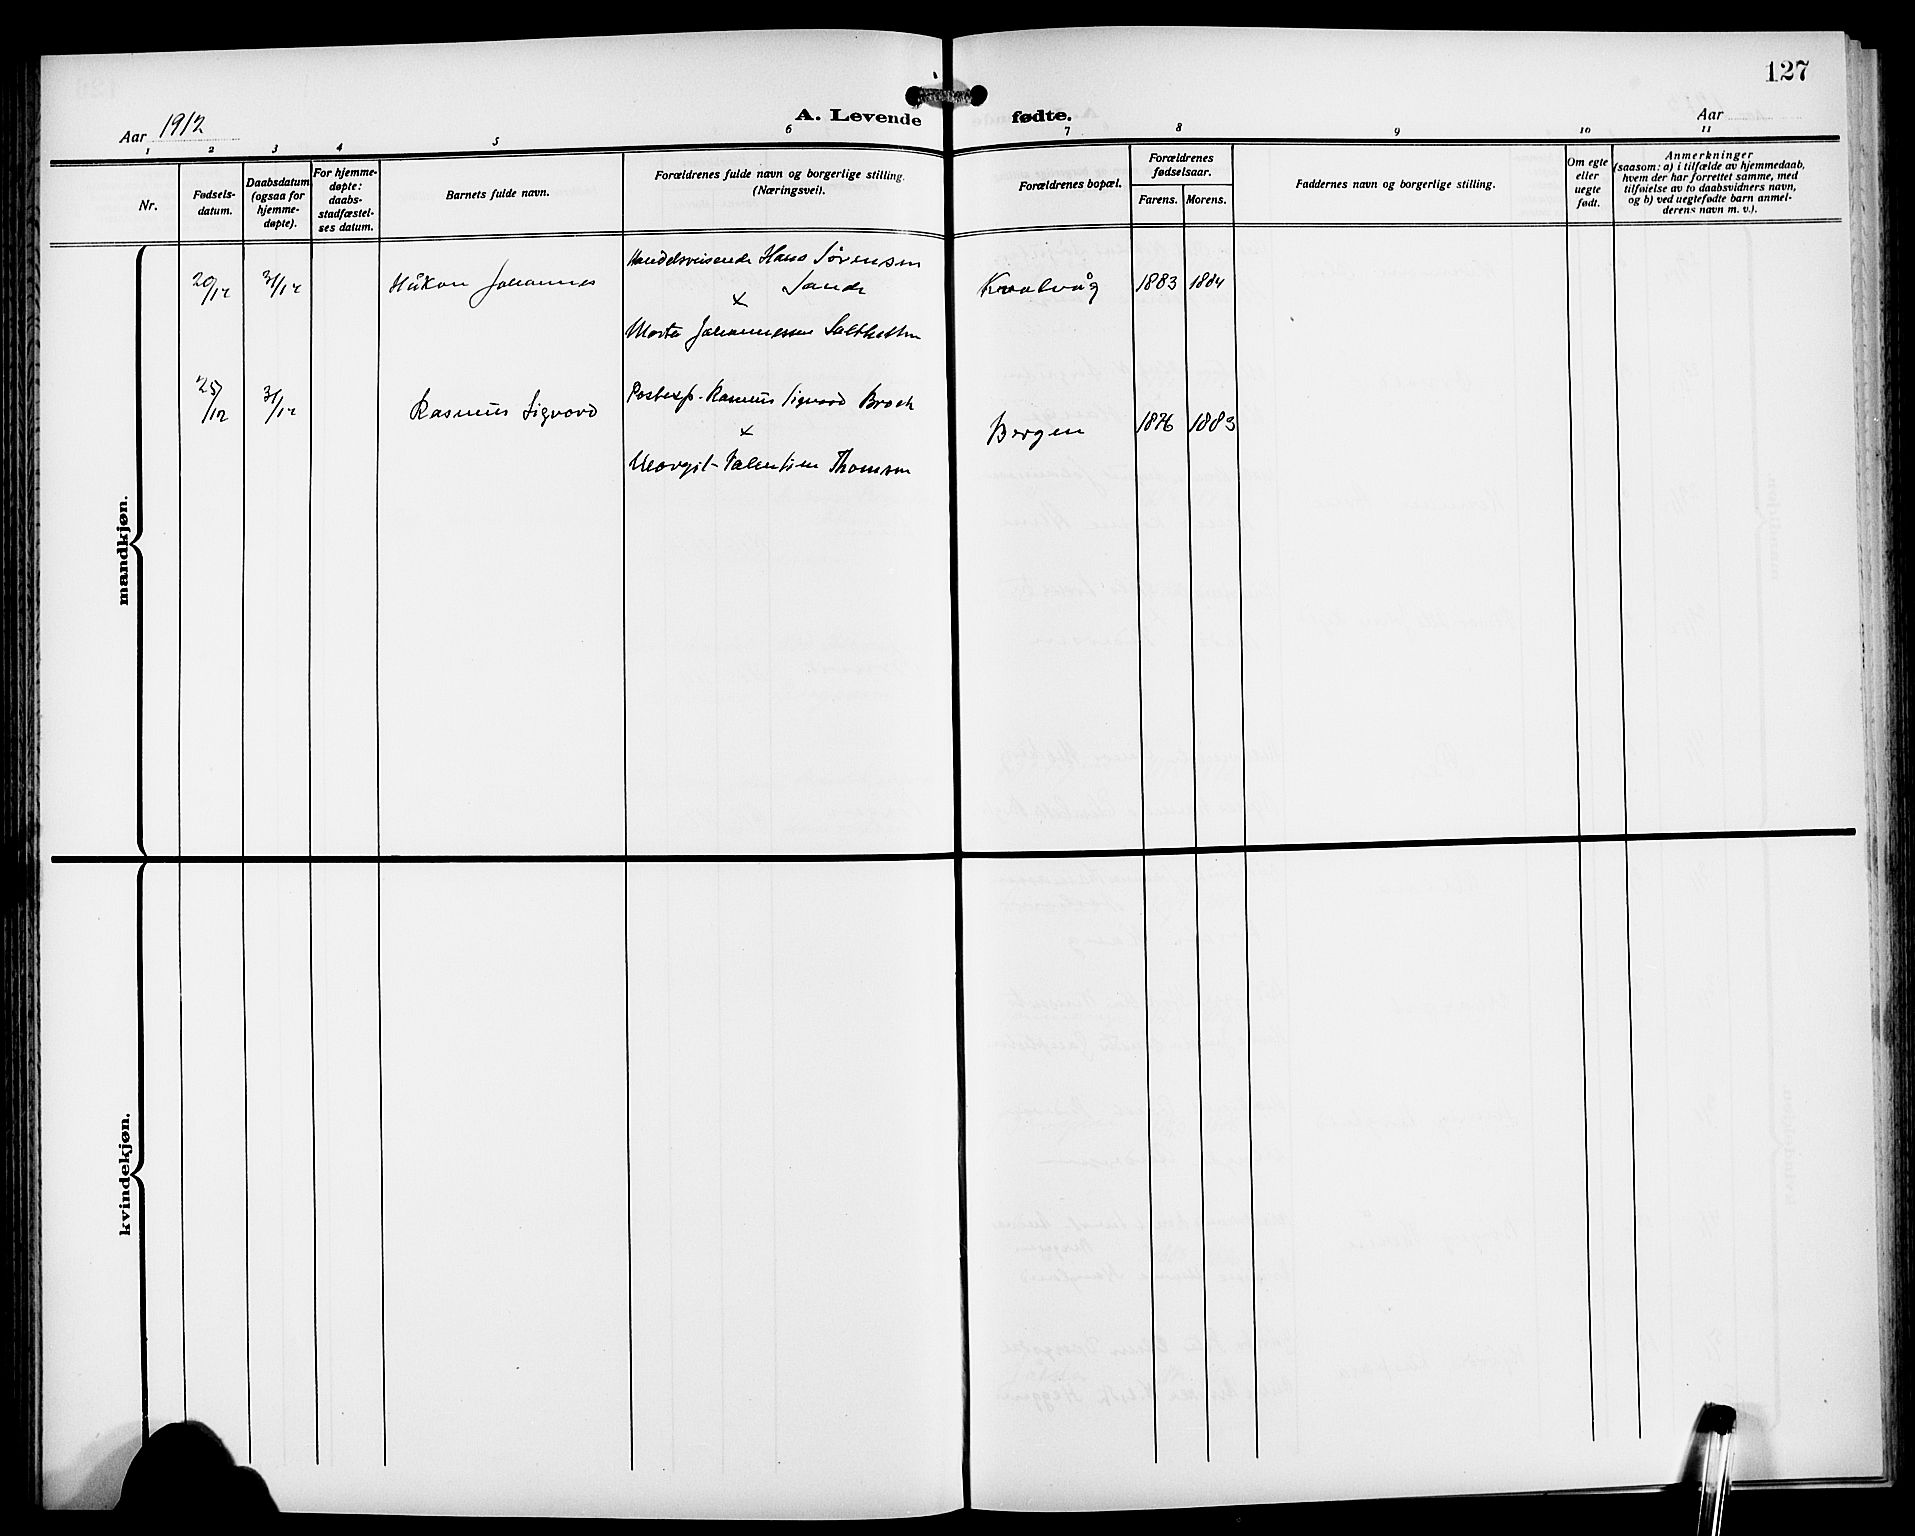 127
A. Levende fødte.
Aar 1912
Aar
1 2 3 4 5 6 7 8 9 10 11
Nr.
Fødsels-
datum.
Daabsdatum
(ogsaa for
hjemme-
døpte).
For hjemme-
døpte:
daabs-
stadfæstel-
ses datum.
Barnets fulde navn.
Forældrenes fulde navn og borgerlige stilling.
(Næringsvei).
Forældrenes bopæl.
Forældrenes
fødselsaar.
Farens. Morens.
Faddernes navn og borgerlige stilling.
Om egte
eller
uegte
født.
Anmerkninger
(saasom: a) i tilfælde av hjemmedaab,
hvem der har forrettet samme, med
tilføielse av to daabsvidners navn,
og b) ved uegtefødte barn anmel-
derens navn m. v.).
mandkjøn.
20/12 31/12 Håkon Johannes
Handelsreisende Hans Sørensen
Sande
x
Marta Johannessen
Kvalvåg 1883 1884
25/12 31/12 Rasmus Sigvard
Postexp. Rasmus Sigvard Broch
x
Margit Valentine Thomsen
Bergen 1876 1883
kvindekjøn.